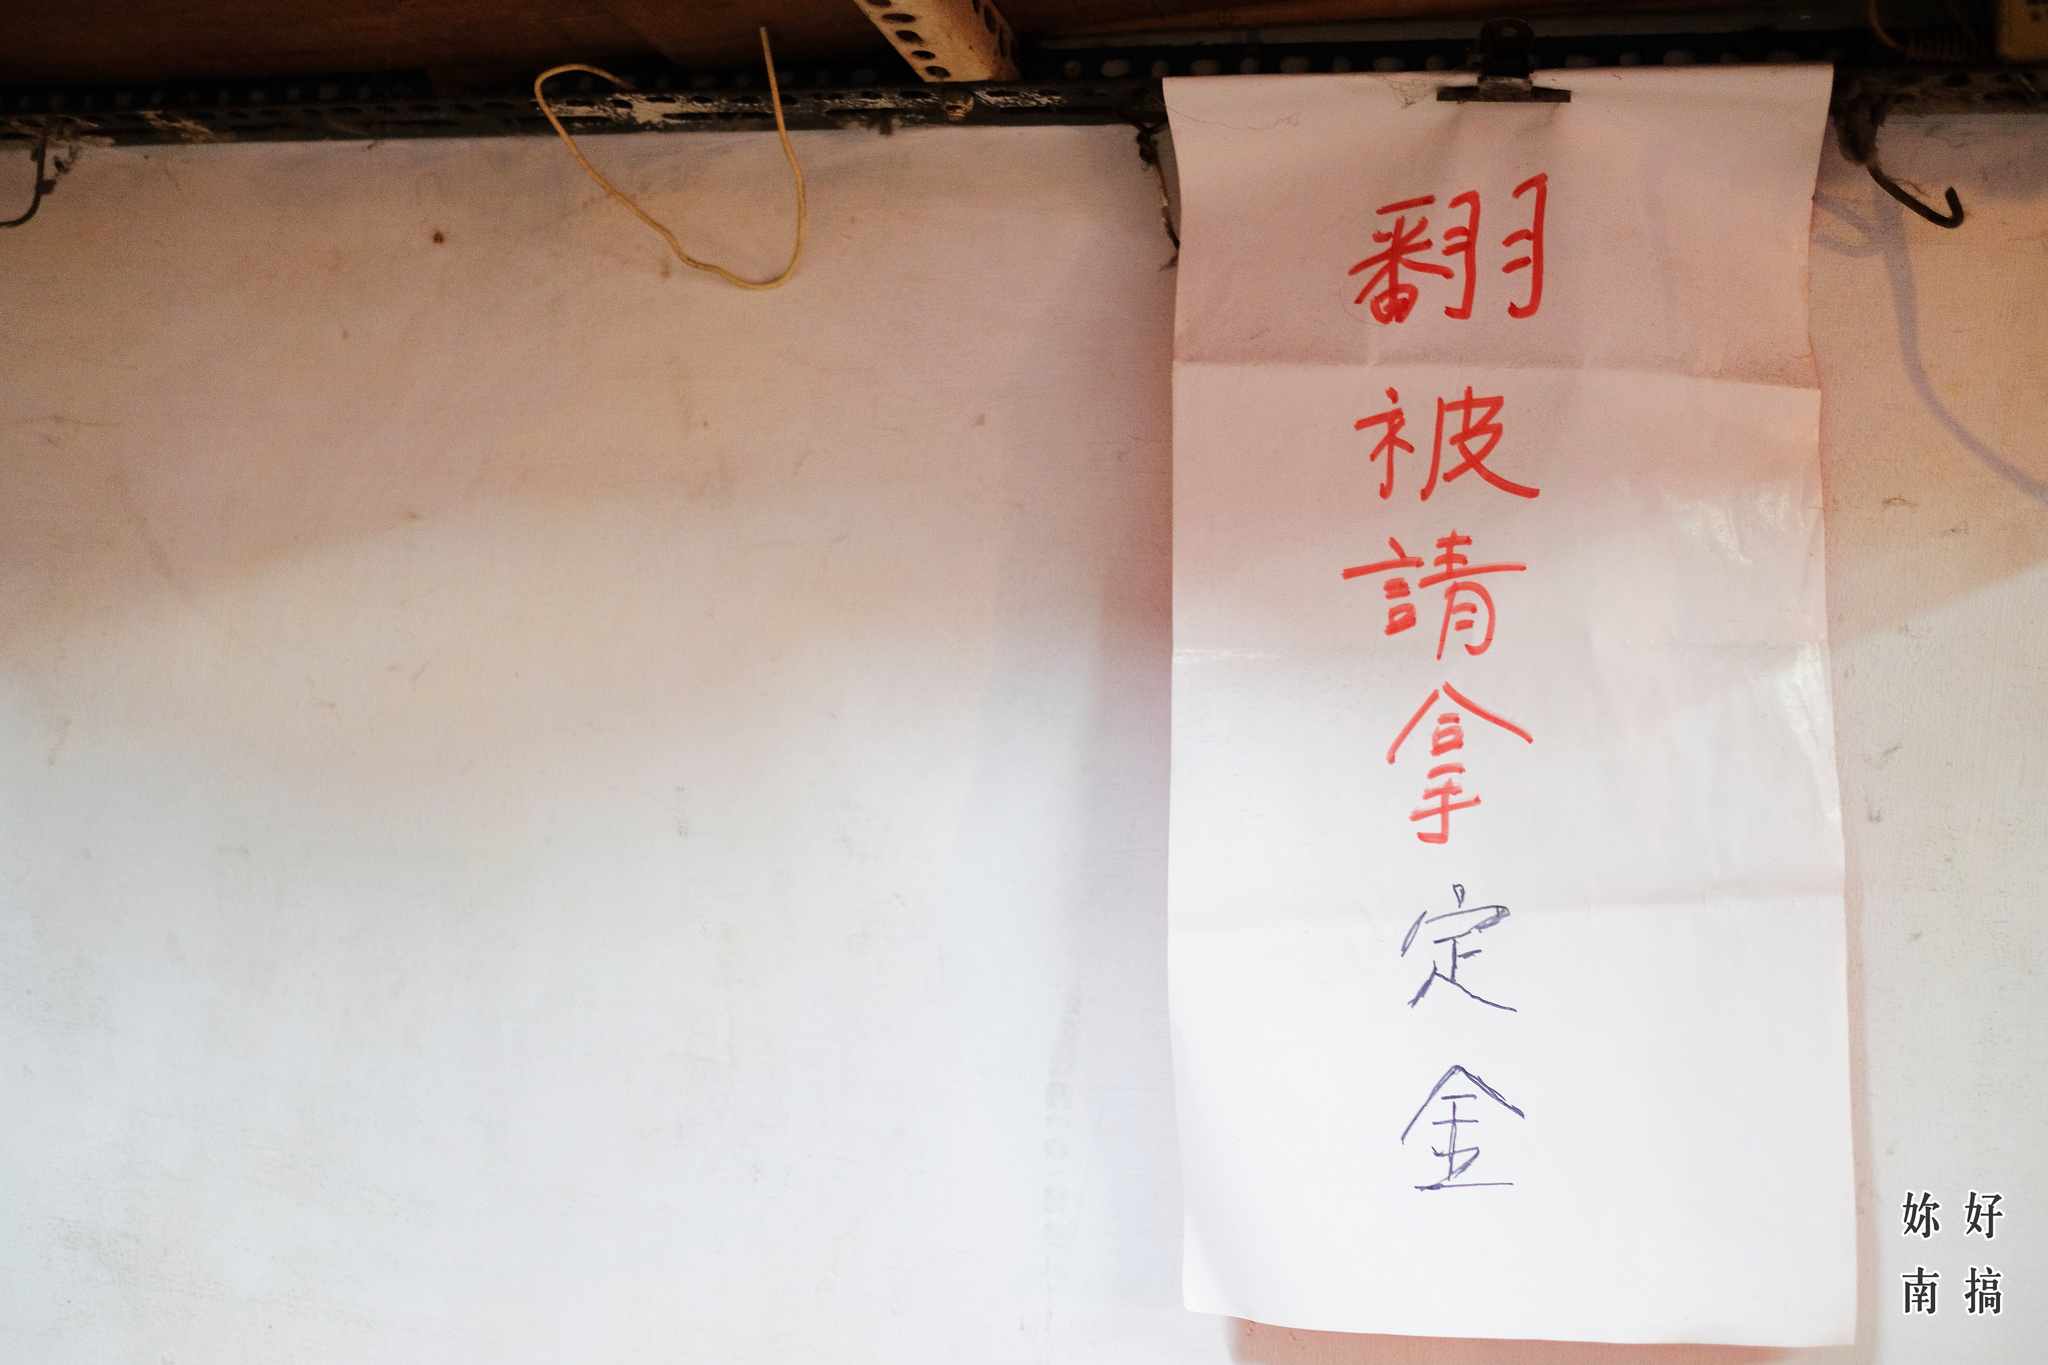 翻被請拿定金
妳好
南搞